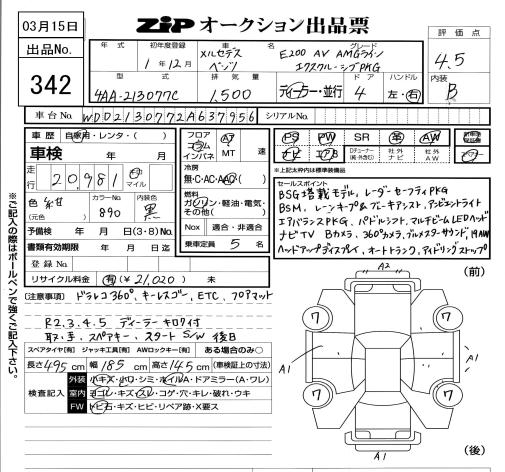 03月15日
ZIP オークション出品票
出品No.
342
年式 初年度登録 車名 グレード
1年12月 メルセデス ベンツ E200 AV AMGライン エクスクルーシブPKG
型式 排気量 ドア ハンドル
4AA-213077C 1,500 ディーラー・並行 4 左・右
評価点
4.5
内装
B
車台No. WDD2130772A637956 シリアルNo.
車歴 自家用・レンタ・( )
車検 年 月
走行 20,981 km マイル
色 紺 (元色) カラーNo. 890 内装 黒
予備検 年 月 日(3・8)No.
書類有効期限 年 月 日迄
登録No.
リサイクル料金 有(¥21,020) 未
フロア コラム インパネ AT MT 速
冷房 無・C・AC・AAC
燃料 ガソリン・軽油・電気・その他( )
Nox 適合・非適合
乗車定員 5 名
PS PW SR 革 AW
ナビ エアB Dチューナー(純・外含む) 社外ナビ 社外AW
※上記太枠内は標準装備品
セールスポイント
BSG搭載モデル、レーダーセーフティPKG
BSM、レーンキープA、ブレーキアシスト、アンビエントライト
エアバランスPKG、パドルシフト、マルチビームLEDヘッド
ナビTV Bカメラ、360°カメラ、ブルメスターサウンド、19AW
ヘッドアップディスプレイ、オートトランク、アイドリングストップ
※ご記入の際はボールペンで強くご記入下さい。
(注意事項) ドラレコ360°、キーレスゴー、ETC、フロアマット
R2.3.4.5 ディーラーキロク付
取・手、スペアキー、スタートS/W 後日
スペアタイヤ[有] ジャッキ工具[有] AWロックキー[有] ある場合のみ○
長さ495cm 幅185cm 高さ145cm (車検証上の寸法)
検査記入
外装 小キズ・小凹・シミ・ホイルA・ドアミラー(A・ワレ)
室内 ヨゴレ・キズ・スレ・コゲ・穴・キレ・破れ・ウキ
FW トビ石・キズ・ヒビ・リペア跡・X要ス
(前)
A2
7 7
A1 A1
7 7
A1
(後)